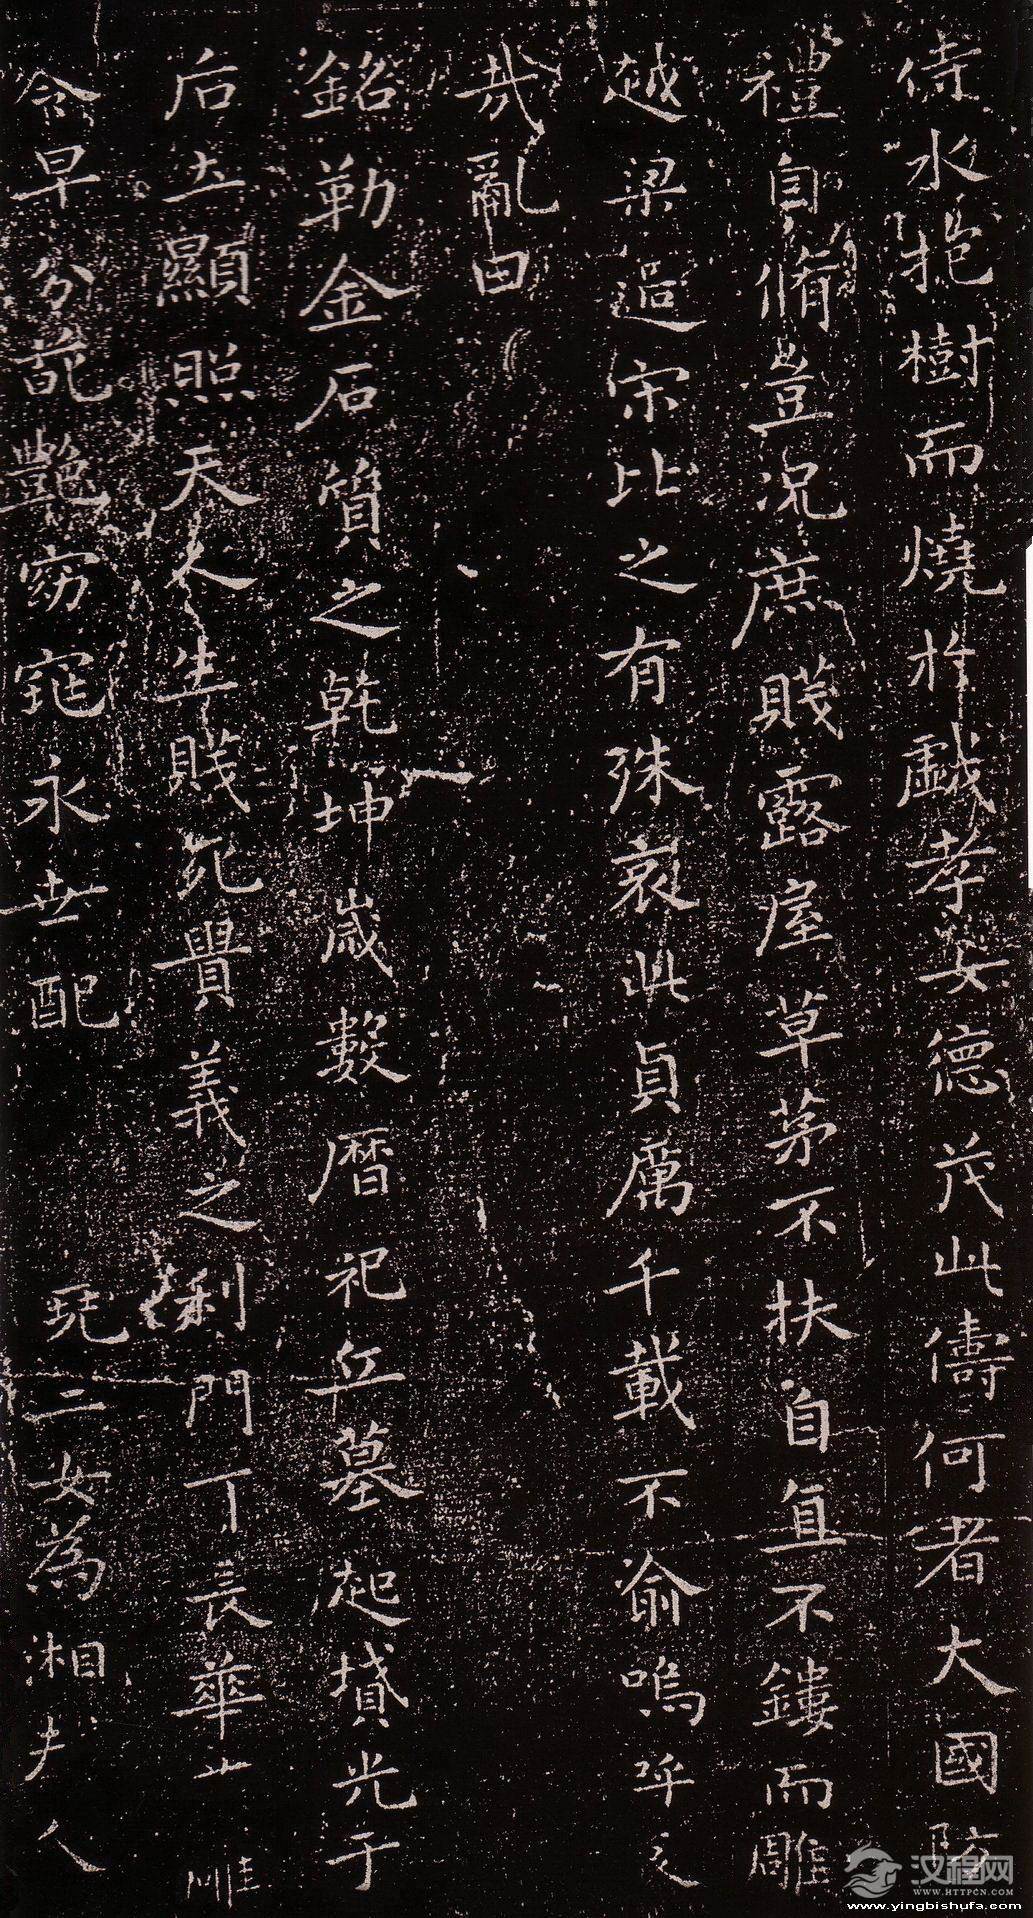 侍水抱樹而燒於戲孝女德茂此儔何者大國防
禮自脩豈況庶賤露屋草茅不扶自直不鏤而雕
越梁過宋比之有殊哀此貞厲千載不渝嗚呼
哀哉亂曰
銘勒金石質之乾坤歲數曆祀丘墓起墳光于
后土顯照天人生賤死貴義之利門丁長華
雕
令早分葩艷窈窕永世配 堯二女為湘夫人
汉程网
WWW.HTTPCN.COM
www.yingbishufa.com